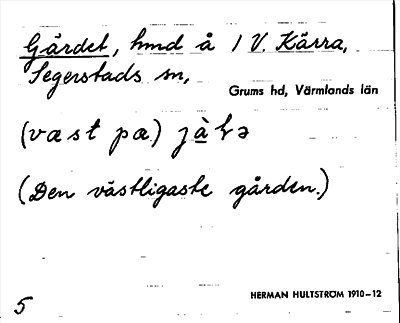 Gärdet, hmd å 1 V. Kärra,
Segerstads sn,
Grums hd, Värmlands län
(væst pæ.)
(Den västligaste gården.)
5
HERMAN HULTSTRÖM 1910–12